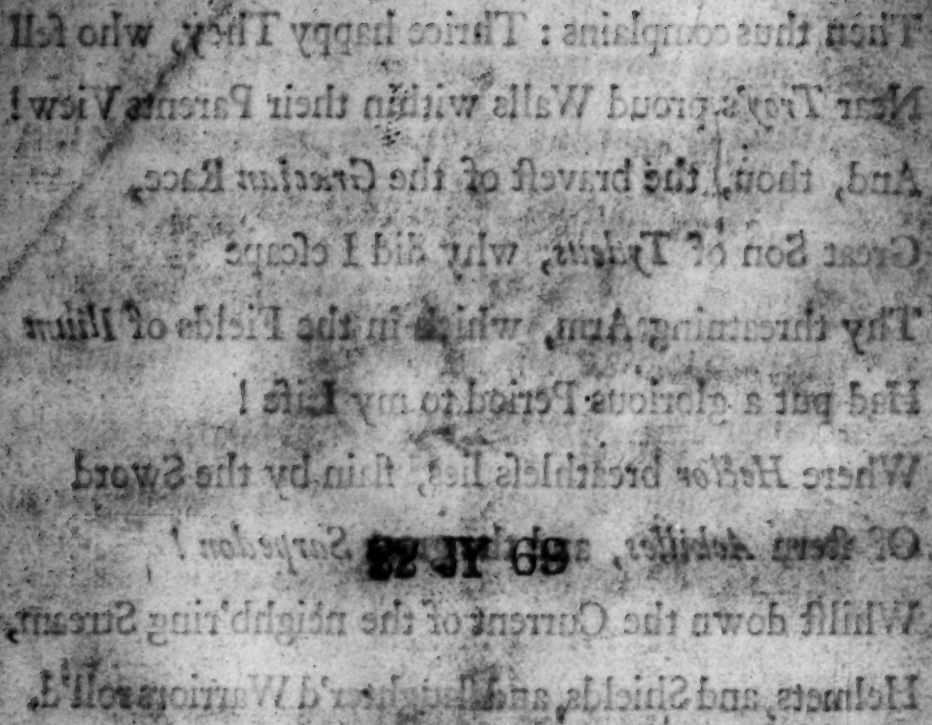 Then thus complains : Thrice happy They, who fell
Near Troy's proud Walls within their Parents View !
And, thou, the braveſt of the Græcian Race,
Great Son of Tydeus, why did I eſcape
Thy threatning Arm, which in the Fields of Ilium
Had put a glorious Period to my Life !
Where Hector breathleſs lies, ſlain by the Sword
Of ſtern Achilles, and Sarpedon !
22 JY 69
Whilſt down the Current of the neighb'ring Stream,
Helmets, and Shields, and ſlaughter'd Warriors roll'd.